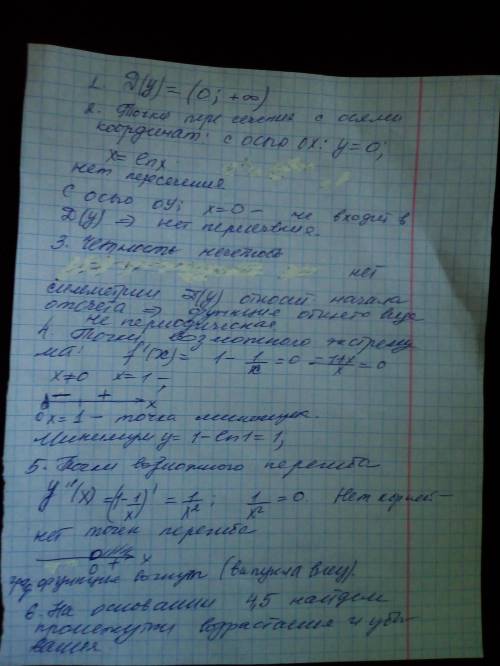 1. D(y) = (0; +∞)
2. Точки пересечения с осями
координат: с осью OX: y=0;
x = lnx
нет пересечения
С осью OY; x=0 – не входит в
D(y) ⇒ нет пересечения.
3. Четность
нет
симметрии D(y) относит начала
отсчета ⇒ функция общего вида
не периодическая
4. Точки возможного экстрему
ма: f'(x) = 1 - 1/x = 0 =
x≠0 x=1
- + x
0 x=1 – точка минимума.
Минимум y = 1 - ln1 = 1;
5. Точки возможного перегиба
y''(x) = (1 - 1/x)' = 1/x²; 1/x² = 0. Нет корней –
нет точек перегиба
0 + x
функция вогнута (выпукла вниз).
6. На основании 4,5 найдем
промежутки возрастания и убы
вания